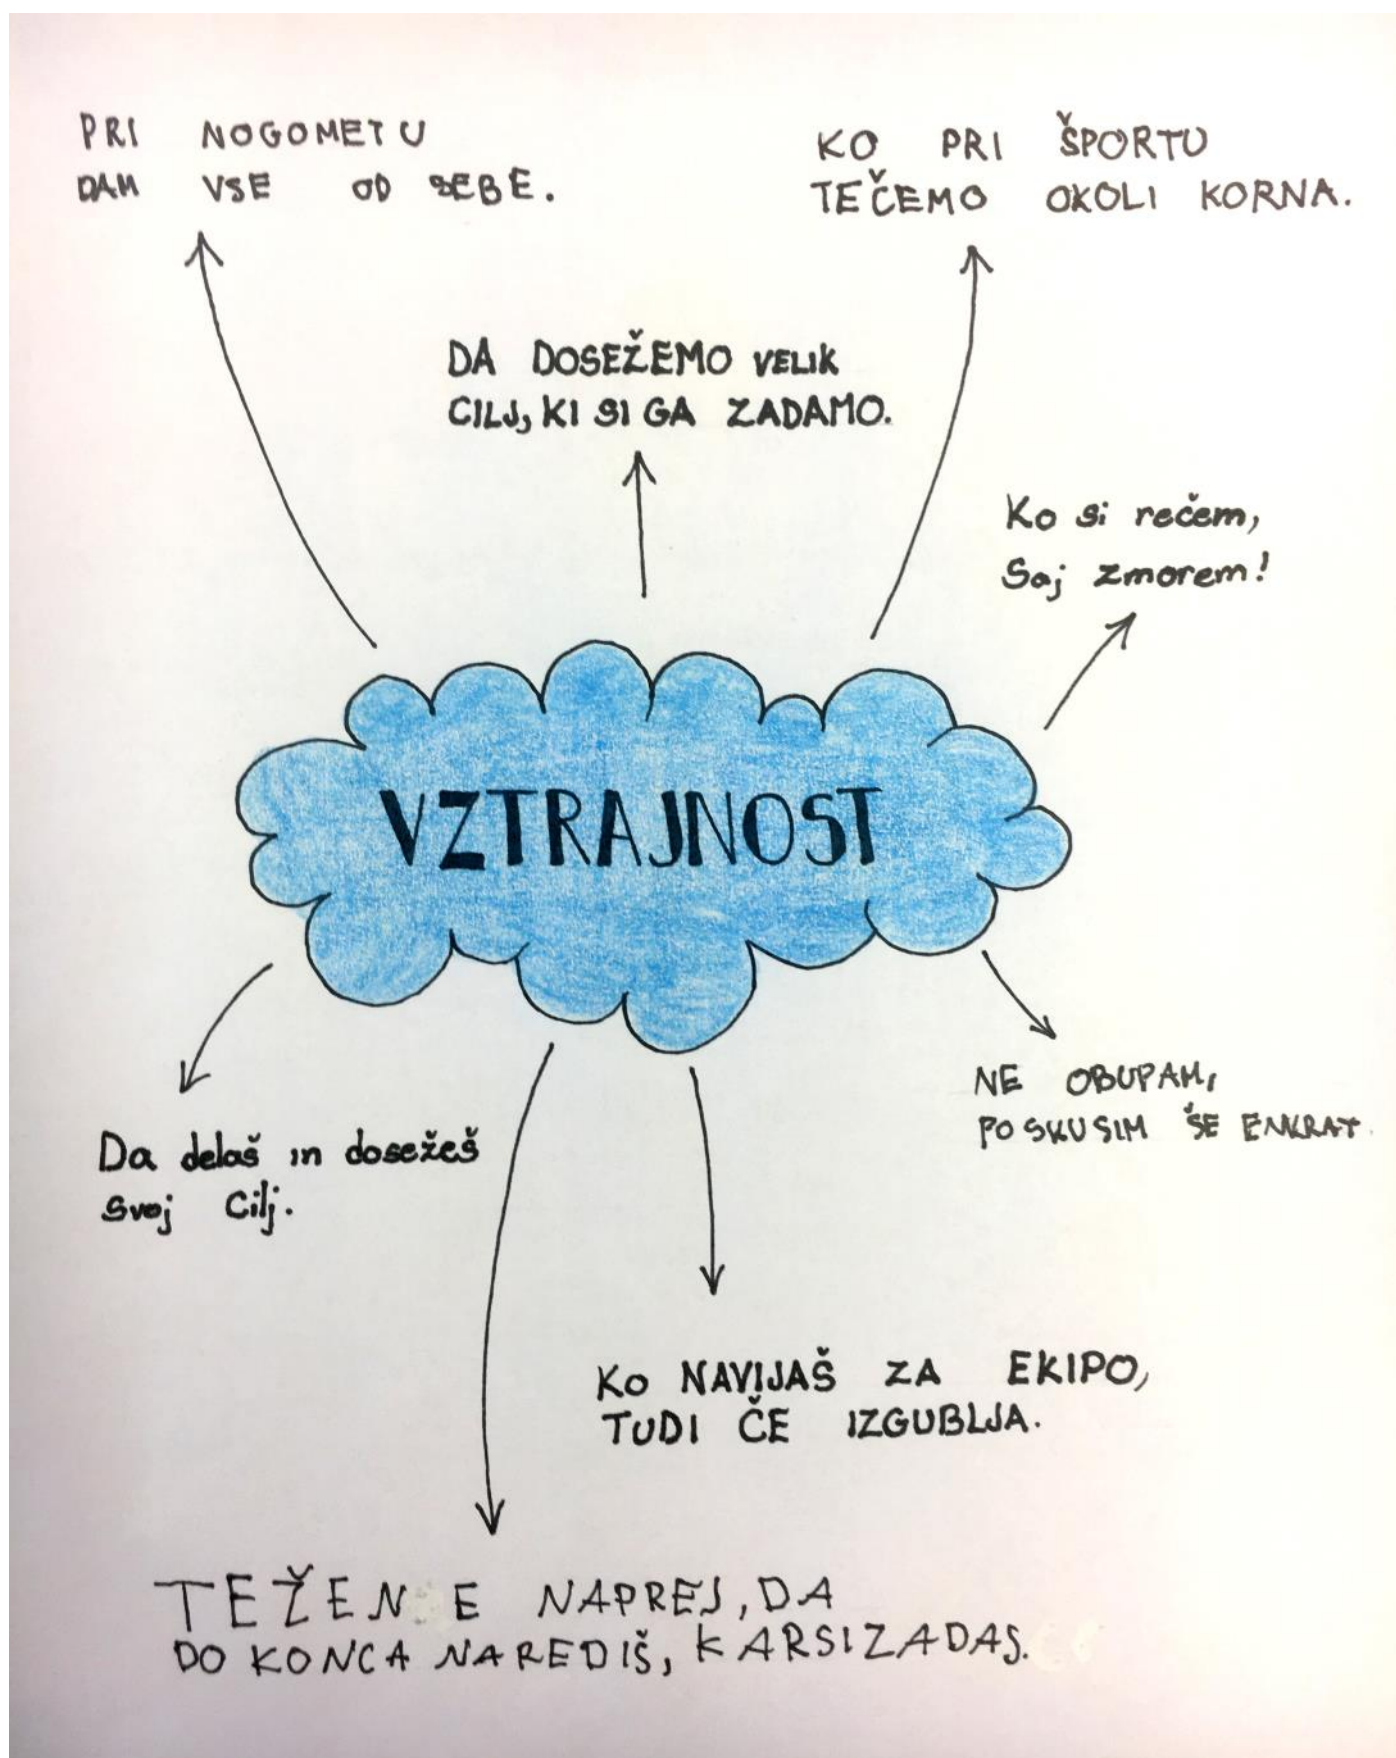 PRI NOGOMETU
DAM VSE OD SEBE.
KO PRI ŠPORTU
TEČEMO OKOLI KORNA.
DA DOSEŽEMO VELIK
CILJ, KI SI GA ZADAMO.
Ko si rečem,
Saj zmorem!
VZTRAJNOST
NE OBUPAM,
POSKUSIM ŠE ENKRAT.
Da delaš in dosežeš
svoj Cilj.
KO NAVIJAŠ ZA EKIPO,
TUDI ČE IZGUBLJA.
NAPREJ, DA
DO KONCA NAREDIŠ, KARSIZADAS.